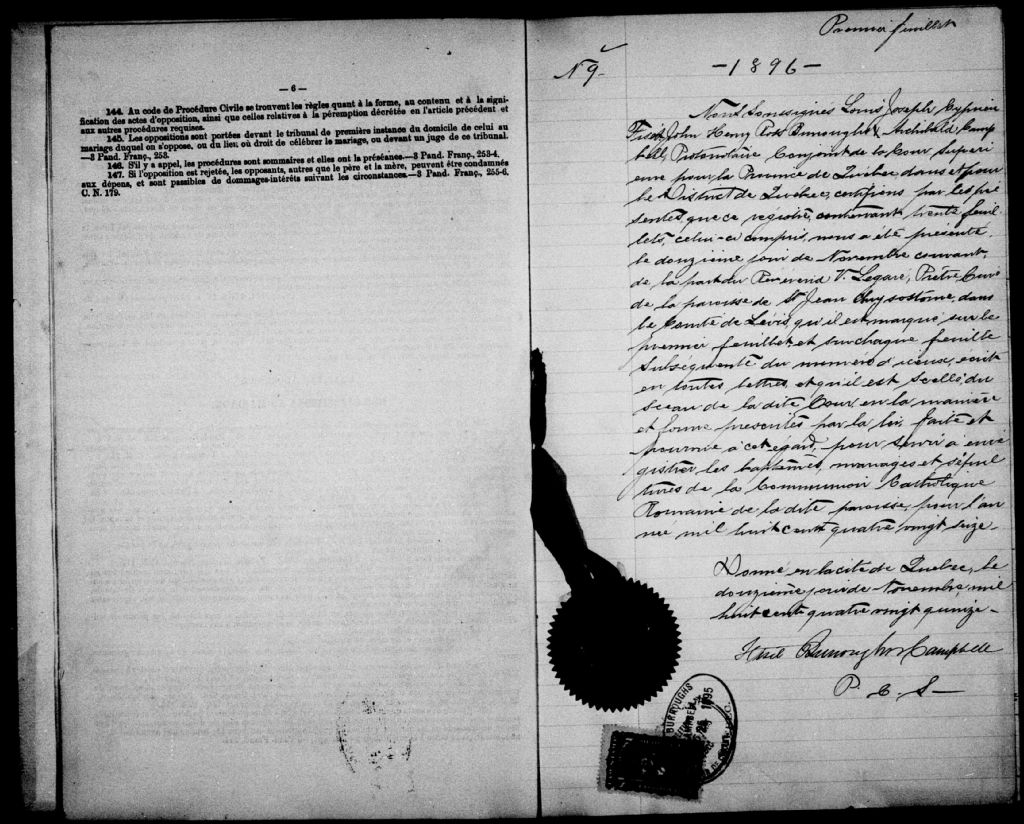 — 6 —
144. Au code de Procédure Civile se trouvent les règles quant à la forme, au contenu et à la signi-
fication des actes d'opposition, ainsi que celles relatives à la péremption décrétée en l'article précédent et
aux autres procédures requises.
145. Les oppositions sont portées devant le tribunal de première instance du domicile de celui au
mariage duquel on s'oppose, ou du lieu où droit de célébrer le mariage, ou devant un juge de ce tribunal.
—3 Pand. Franç, 253.
146. S'il y a appel, les procédures sont sommaires et elles ont la préséance.—3 Pand. Franç., 253-4.
147. Si l'opposition est rejetée, les opposants, autres que le père et la mère, peuvent être condamnés
aux dépens, et sont passibles de dommages-intérêts suivant les circonstances.—3 Pand. Franç., 255-6.
C. N. 179.
Premier feuillet
N 9
—1896—
Nous Soussignés Louis Joseph Cyprien
Fiset, John Henry Ross Burroughs & Archibald Camp
bell, Protonotaire Conjoint de la Cour Supéri
eure pour la Province de Québec dans et pour
le District de Québec, certifions par les pré
sentes, que ce registre, contenant trente feuil
lets, celui-ci compris, nous a été présenté
le douzième jour de Novembre courant,
de la part du Révérend V. Légaré, Prêtre Curé
de la paroisse de St Jean Chrysostome, dans
le Comté de Lévis, qu'il est marqué sur le
premier feuillet et sur chaque feuille
subséquente du numéro d'iceux, écrit
en toutes lettres, et qu'il est scellé, du
sceau de la dite Cour, en la manière
et forme prescrites par la loi, faite et
pourvue à cet égard, pour servir à enre
gistrer les baptêmes, mariages et sépul
tures de la Communion Catholique
Romaine de la dite paroisse, pour l'an
née mil huit cent quatre vingt seize—
Donné en la cité de Québec, le
douzième jour de Novembre, mil
huit cent quatre vingt quinze—
Fiset Burroughs & Campbell
P. C. S—
BURROUGHS
1895